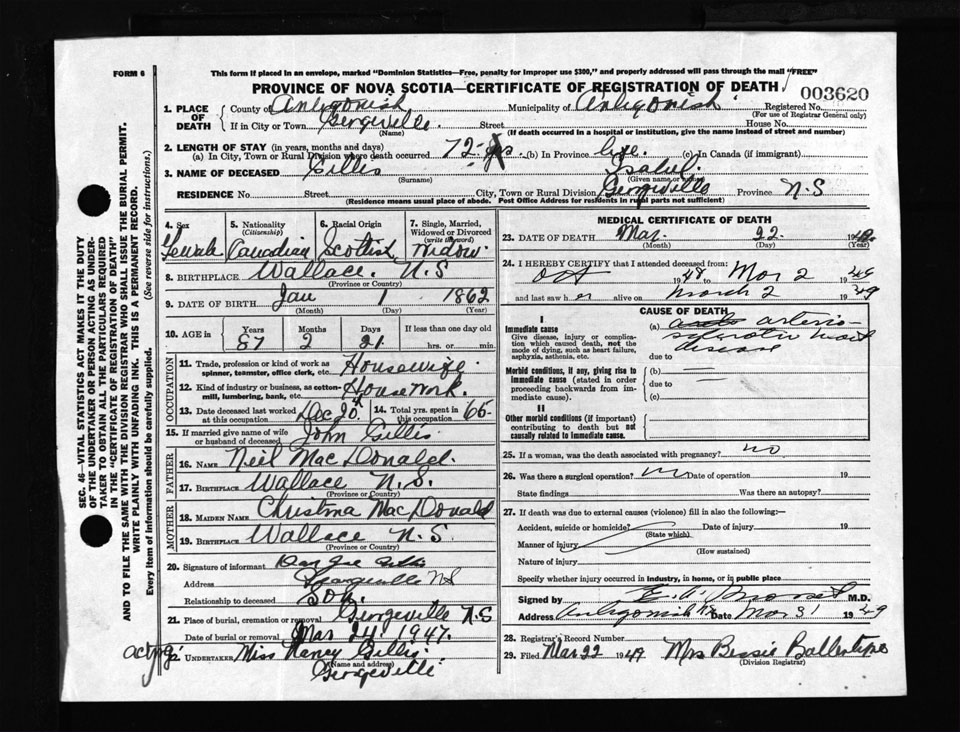 FORM 6
This form if placed in an envelope, marked "Dominion Statistics—Free, penalty for improper use $300," and properly addressed will pass through the mail "FREE"
PROVINCE OF NOVA SCOTIA—CERTIFICATE OF REGISTRATION OF DEATH
003620
1. PLACE OF DEATH County of Antigonish Municipality of Antigonish Registered No.
(For use of Registrar General only)
If in City or Town Georgeville Street House No.
(Name) (If death occurred in a hospital or institution, give the name instead of street and number)
2. LENGTH OF STAY (in years, months and days)
(a) In City, Town or Rural Division where death occurred 72 yrs (b) In Province life (c) In Canada (if immigrant)
3. NAME OF DECEASED Gillis Isabel
(Surname) (Given name or names)
RESIDENCE No. Street City, Town or Rural Division Georgeville Province N.S
(Residence means usual place of abode. Post Office Address for residents in rural parts not sufficient)
4. Sex Female
5. Nationality (Citizenship) Canadian
6. Racial Origin Scottish
7. Single, Married, Widowed or Divorced (write the word) Widow
8. BIRTHPLACE Wallace. N.S
(Province or Country)
9. DATE OF BIRTH Jan 1 1862
(Month) (Day) (Year)
10. AGE in Years Months Days If less than one day old
87 2 21 hrs. or min.
OCCUPATION
11. Trade, profession or kind of work as spinner, teamster, office clerk, etc. Housewife
12. Kind of industry or business, as cotton-mill, lumbering, bank, etc. House work
13. Date deceased last worked at this occupation Dec 20th 14. Total yrs. spent in this occupation 65
15. If married give name of wife or husband of deceased John Gillis
FATHER
16. NAME Neil MacDonald.
17. BIRTHPLACE Wallace N.S.
(Province or Country)
MOTHER
18. MAIDEN NAME Christina MacDonald
19. BIRTHPLACE Wallace N.S
(Province or Country)
20. Signature of informant Dan Joe Gillis
Address Georgeville NS
Relationship to deceased Son.
21. Place of burial, cremation or removal Georgeville N.S
Date of burial or removal Mar 24 1947.
act'ng 22. UNDERTAKER Miss Nancy Gillis
(Name and address)
Georgeville
MEDICAL CERTIFICATE OF DEATH
23. DATE OF DEATH Mar. 22 19
(Month) (Day) (Year)
24. I HEREBY CERTIFY that I attended deceased from:
Oct 1948 to Mar 2 1949
and last saw her alive on March 2 1949
CAUSE OF DEATH
I
Immediate cause
Give disease, injury or complication which caused death, not the mode of dying, such as heart failure, asphyxia, asthenia, etc.
(a) arterio-
sclerotic heart
disease
due to
Morbid conditions, if any, giving rise to immediate cause (stated in order proceeding backwards from immediate cause).
(b)
due to
(c)
II
Other morbid conditions (if important) contributing to death but not causally related to immediate cause.
25. If a woman, was the death associated with pregnancy? no
26. Was there a surgical operation? no Date of operation 19
State findings Was there an autopsy?
27. If death was due to external causes (violence) fill in also the following:—
Accident, suicide or homicide? Date of injury 19
(State which)
Manner of injury
(How sustained)
Nature of injury
Specify whether injury occurred in industry, in home, or in public place
Signed by M.D.
Address Antigonish NS Date Mar 31 1949
28. Registrar's Record Number
29. Filed Mar 22 1949 Mrs Bessie
(Division Registrar)
SEC. 46—VITAL STATISTICS ACT MAKES IT THE DUTY
OF THE UNDERTAKER OR PERSON ACTING AS UNDER-
TAKER TO OBTAIN ALL THE PARTICULARS REQUIRED
IN THE "CERTIFICATE OF REGISTRATION OF DEATH"
AND TO FILE THE SAME WITH THE DIVISION REGISTRAR WHO SHALL ISSUE THE BURIAL PERMIT.
WRITE PLAINLY WITH UNFADING INK. THIS IS A PERMANENT RECORD.
Every item of information should be carefully supplied. (See reverse side for instructions.)